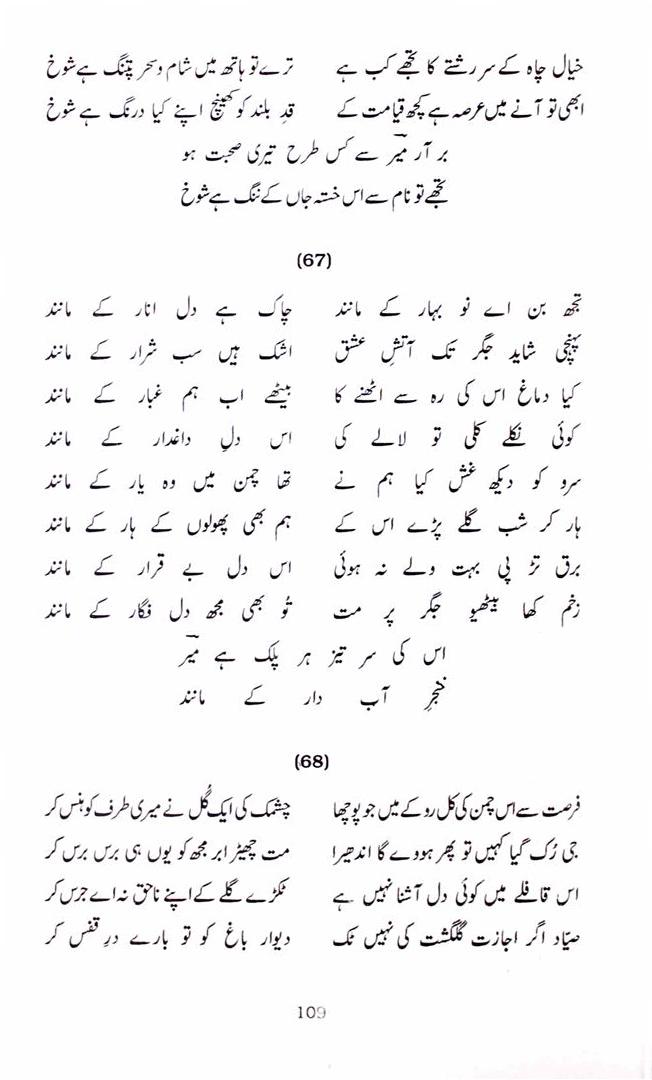 خیال چاہ کے سر رشتے کا تجھے کب ہے ترے تو ہاتھ میں شام و سحر پتنگ ہے شوخ
ابھی تو آنے میں عرصہ ہے کچھ قیامت کے قدِ بلند کو کھینچ اپنے کیا درنگ ہے شوخ
بر آر میر سے کس طرح تیری صحبت ہو
تجھے تو نام سے اس خستہ جاں کے ننگ ہے شوخ
(67)
تجھ بن اے نو بہار کے مانند چاک ہے دل انار کے مانند
پہنچی شاید جگر تک آتشِ عشق اشک ہیں سب شرار کے مانند
کیا دماغ اس کی رہ سے اٹھنے کا بیٹھے اب ہم غبار کے مانند
کوئی نکلے کلی تو لالے کی اس دلِ داغدار کے مانند
سرو کو دیکھ غش کیا ہم نے تھا چمن میں وہ یار کے مانند
ہار کر شب گلے پڑے اس کے ہم بھی پھولوں کے ہار کے مانند
برق تڑپی بہت ولے نہ ہوئی اس دل بے قرار کے مانند
زخم کھا بیٹھیو جگر پر مت تُو بھی مجھ دل فگار کے مانند
اس کی سر تیز ہر پلک ہے میر
خنجرِ آب دار کے مانند
(68)
فرصت سے اس چمن کی کل روکے میں جو پوچھا چشمک کی ایک گُل نے میری طرف کو ہنس کر
جی رُک گیا کہیں تو پھر ہووے گا اندھیرا مت چھیڑ ابر مجھ کو یوں ہی برس برس کر
اس قافلے میں کوئی دل آشنا نہیں ہے ٹکڑے گلے کے اپنے ناحق نہ اے جرس کر
صیّاد اگر اجازت گلگشت کی نہیں ٹک دیوارِ باغ کو تو بارے درِ قفس کر
109